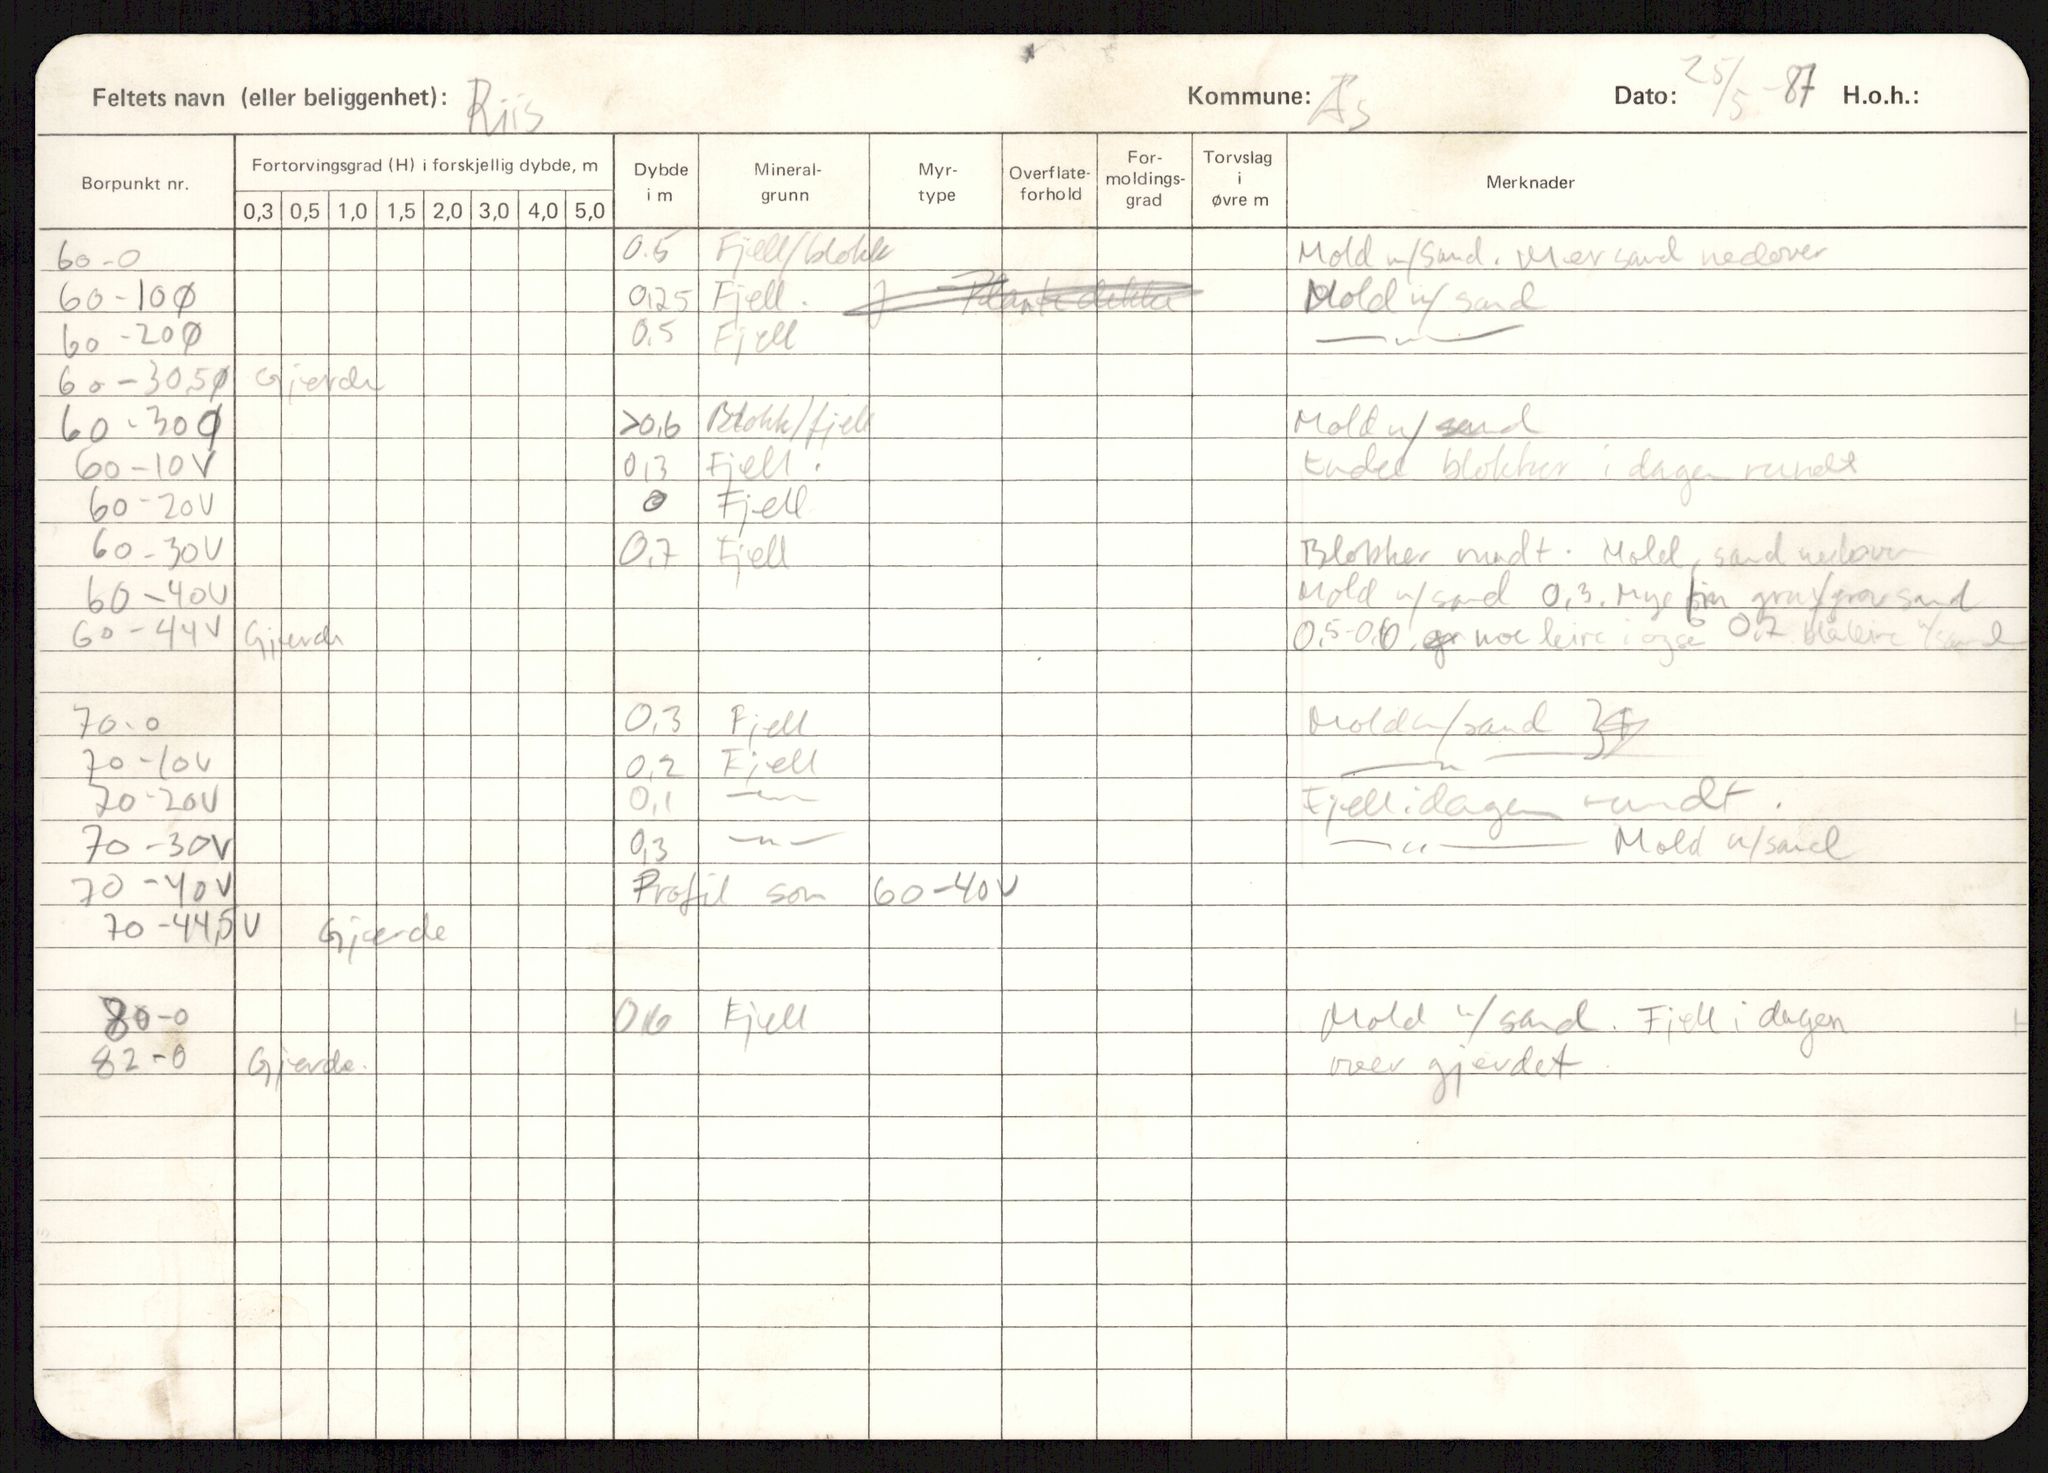 Feltets navn (eller beliggenhet): Riis Kommune: Ås Dato: 25/5-87 H.o.h.:
Borpunkt nr. Fortorvingsgrad (H) i forskjellig dybde, m Dybde i m Mineral-grunn Myr-type Overflate-forhold For-moldings-grad Torvslag i øvre m Merknader
0,3 0,5 1,0 1,5 2,0 3,0 4,0 5,0
60-0 0.5 Fjell/blokk Mold m/sand. Mer sand nedover
60-10Ø 0,25 Fjell. Mold m/sand
60-20Ø 0,5 Fjell —"—
60-30,5Ø Gjerde
60-30Ø >0,6 Blokk/fjell Mold m/sand
60-10V 0,3 Fjell. Endel blokker i dagen rundt
60-20V 0 Fjell
60-30V 0,7 Fjell Blokker rundt. Mold, sand nedover
60-40V Mold m/sand 0,3. Mye fin grus/grov sand
60-44V Gjerde 0,5-0,6, noe leire i også 0,7 blåleire m/sand
70-0 0,3 Fjell Mold m/sand
70-10V 0,2 Fjell —"—
70-20V 0,1 —"— Fjell i dagen rundt.
70-30V 0,3 —"— —"— Mold m/sand
70-40V Profil som 60-40V
70-44,5V Gjerde
80-0 0,6 Fjell Mold m/sand. Fjell i dagen
82-0 Gjerde. over gjerdet